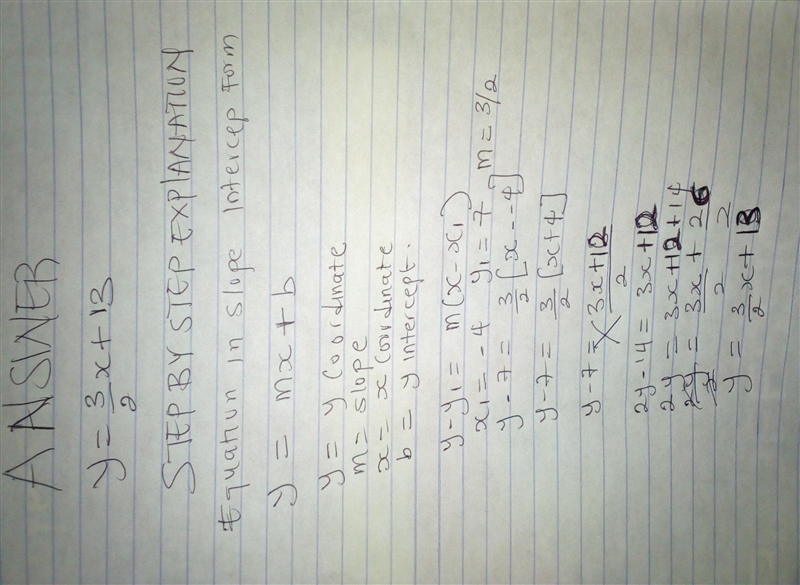 ANSWER
y = 3/2 x + 13
STEP BY STEP EXPLANATION
Equation in slope Intercep Form
y = mx + b
y = y Coordinate
m = slope
x = x Coordinate
b = y Intercept.
y - y₁ = m(x - x₁)
x₁ = -4 y₁ = 7 m = 3/2
y - 7 = 3/2 [x - -4]
y - 7 = 3/2 [x + 4]
y - 7 = (3x + 12)/2
2y - 14 = 3x + 12
2y = 3x + 12 + 14
2y/2 = 3x/2 + 26/2
y = 3/2 x + 13